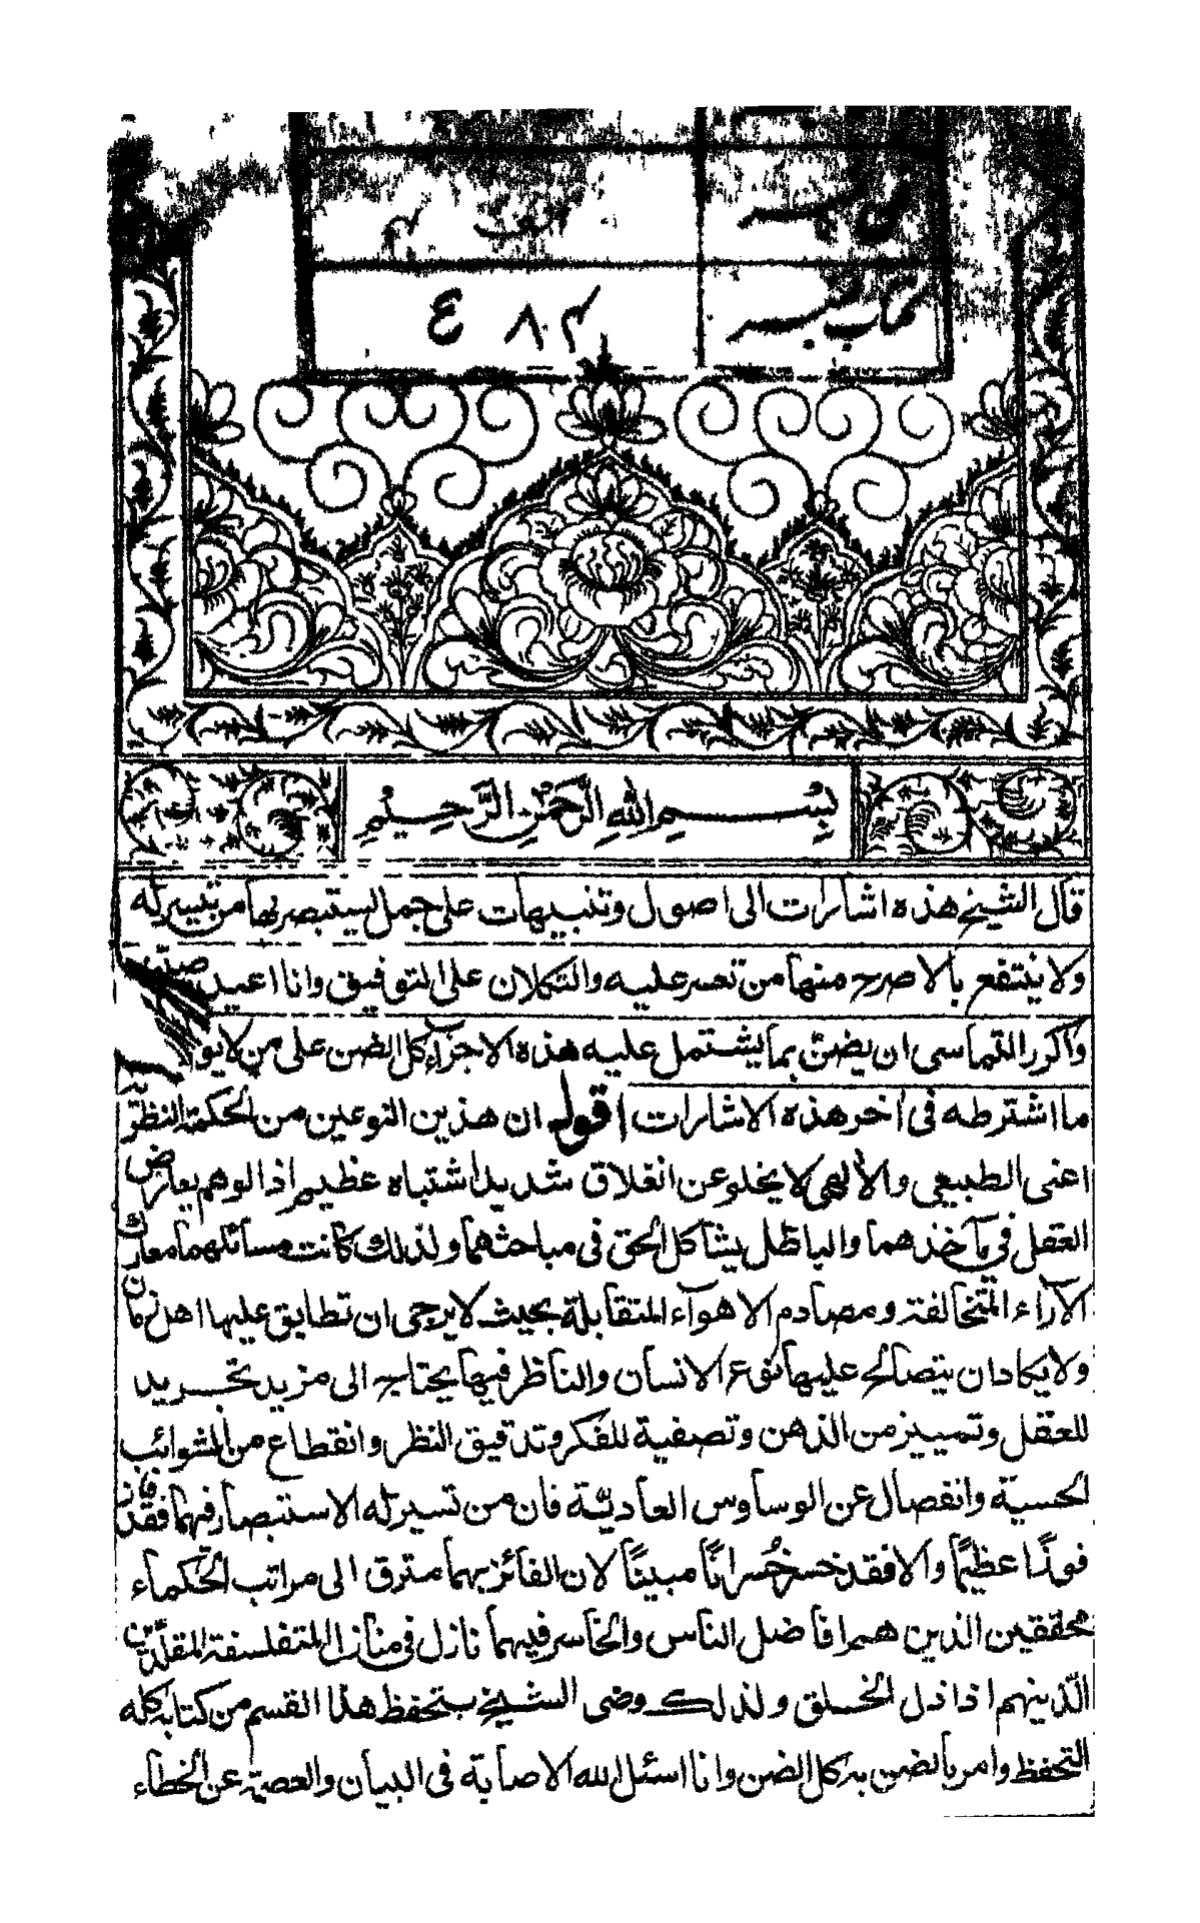 كتاب نمبر
٤ ٨٠٣
بِسْمِ اللهِ الرَّحْمٰنِ الرَّحِيْمِ
قال الشيخ هذه اشارات الى اصول وتنبيهات على جمل يستبصر بها من تيسر له
ولا ينتفع بالاصرح منها من تعسر عليه والتكلان على التوفيق وانا اعيد وصيتى
واكرر التماسى ان يضن بما يشتمل عليه هذه الاجزاء كل الضن على من لا يو
ما اشترطه فى آخر هذه الاشارات اقول ان هذين النوعين من الحكمة النظريّة
اعنى الطبيعى والالهى لا يخلو عن انغلاق شديد واشتباه عظيم اذ الوهم يعارض
العقل فى مآخذهما والباطل يشاكل الحق فى مباحثهما ولذلك كانت مسائلهما معارك
الآراء المتخالفة ومصادم الاهوآء المتقابلة بحيث لا يرجى ان تطابق عليها اهل زمان
ولا يكاد ان يتصالح عليها نوع الانسان والناظر فيها يحتاج الى مزيد تجريد
للعقل وتمييز من الذهن وتصفية للفكر وتدقيق النظر وانقطاع من الشوائب
الحسية وانفصال عن الوساوس العاديّة فان من تيسر له الاستبصار فيهما فقد فاز
فوزًا عظيمًا والا فقد خسر خُسرانًا مبينًا لان الفائز بهما مترق الى مراتب الحكماء
المحققين الذين هم افاضل الناس والخاسر فيهما نازل فى منازل المتفلسفة المقلّدين
الّذينهم اذاذل الخلق ولذلك وصى الشيخ بتحفظ هذا القسم من كتابه كله
التحفظ وامر بالضن به كل الضن وانا اسئل الله الاصابة فى البيان والعصمة عن الخطاء